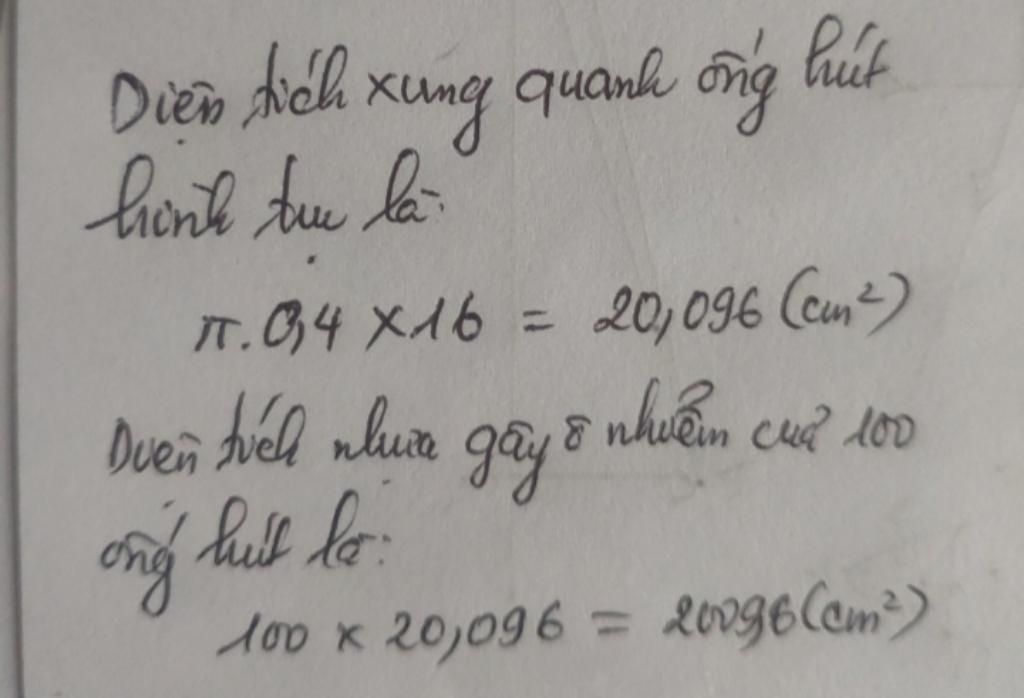 Diện tích xung quanh ống hút
hình trụ là:
π.0,4 × 16 = 20,096 (cm²)
Diện tích nhựa gây ô nhiễm của 100
ống hút là:
100 × 20,096 = 20096 (cm²)